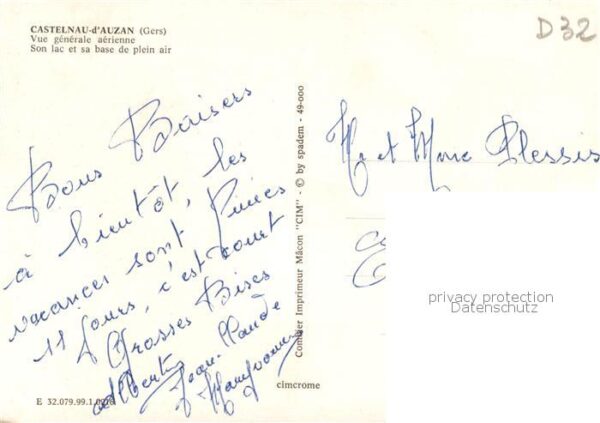 CASTELNAU-d'AUZAN (Gers)
Vue générale aérienne
Son lac et sa base de plein air
D32
Bons Baisers
à bientôt, les
vacances sont finies
11 jours, c'est court
Grosses Bises
Jean-Claude
Combier Imprimeur Mâcon "CIM" - © by spadem - 49-000
Mr et Mme Plessis
privacy protection
Datenschutz
cimcrome
E 32.079.99.1.0